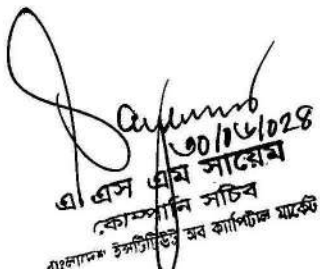 ৩০/০৬/০২৪
এ. এস এম সায়েম
কোম্পানি সচিব
বাংলাদেশ ইনস্টিটিউট অব ক্যাপিটাল মার্কেট